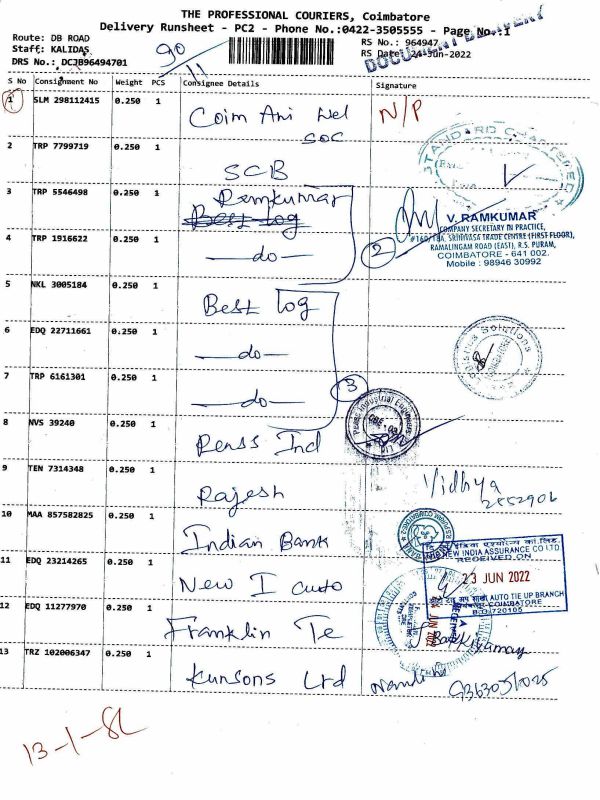 THE PROFESSIONAL COURIERS, Coimbatore
Delivery Runsheet - PC2 - Phone No.:0422-3505555 - Page No.:1
DOCUMENT DELIVERY
Route: DB ROAD
Staff: KALIDAS
DRS No.: DCJB96494701
90
11
RS No.: 964947
RS Date: 24-Jun-2022
S No Consignment No Weight PCS Consignee Details Signature
1 SLM 298112415 0.250 1 Coim Ani Wel N/P
Soc
2 TRP 7799719 0.250 1 SCB
STANDARD CHARTERED
3 TRP 5546498 0.250 1 Ramkumar
Best log
4 TRP 1916622 0.250 1 —do—
2
V. RAMKUMAR
COMPANY SECRETARY IN PRACTICE,
#160/18A, SRINIVASA TRADE CENTRE (FIRST FLOOR),
RAMALINGAM ROAD (EAST), R.S. PURAM,
COIMBATORE - 641 002.
Mobile : 98946 30992
5 NKL 3005184 0.250 1 Best log
6 EDQ 22711661 0.250 1 —do—
Solutions
7 TRP 6161301 0.250 1 —do—
3
8 NVS 39240 0.250 1 Penss Ind
Industrial Engineers
9 TEN 7314348 0.250 1 Rajesh
Vidhya
2552906
10 MAA 857582825 0.250 1 Indian Bank
11 EDQ 23214265 0.250 1 New I
NEW INDIA ASSURANCE CO LTD
RECEIVED ON
23 JUN 2022
AUTO TIE UP BRANCH
COIMBATORE
B.O:720105
12 EDQ 11277970 0.250 1 Franklin Te
13 TRZ 102006347 0.250 1 Kunsons Ltd
9363051025
13-1-82